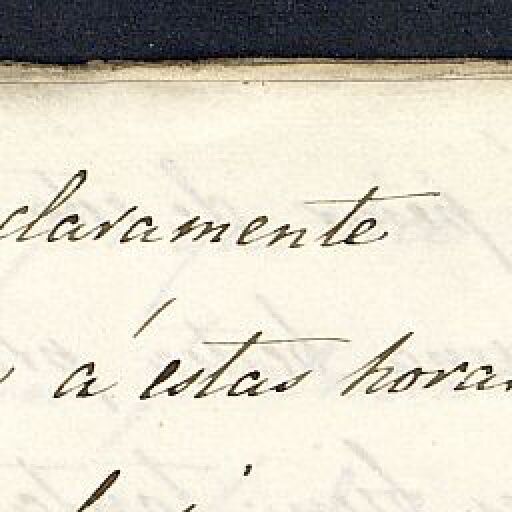 claramente
á estas horas